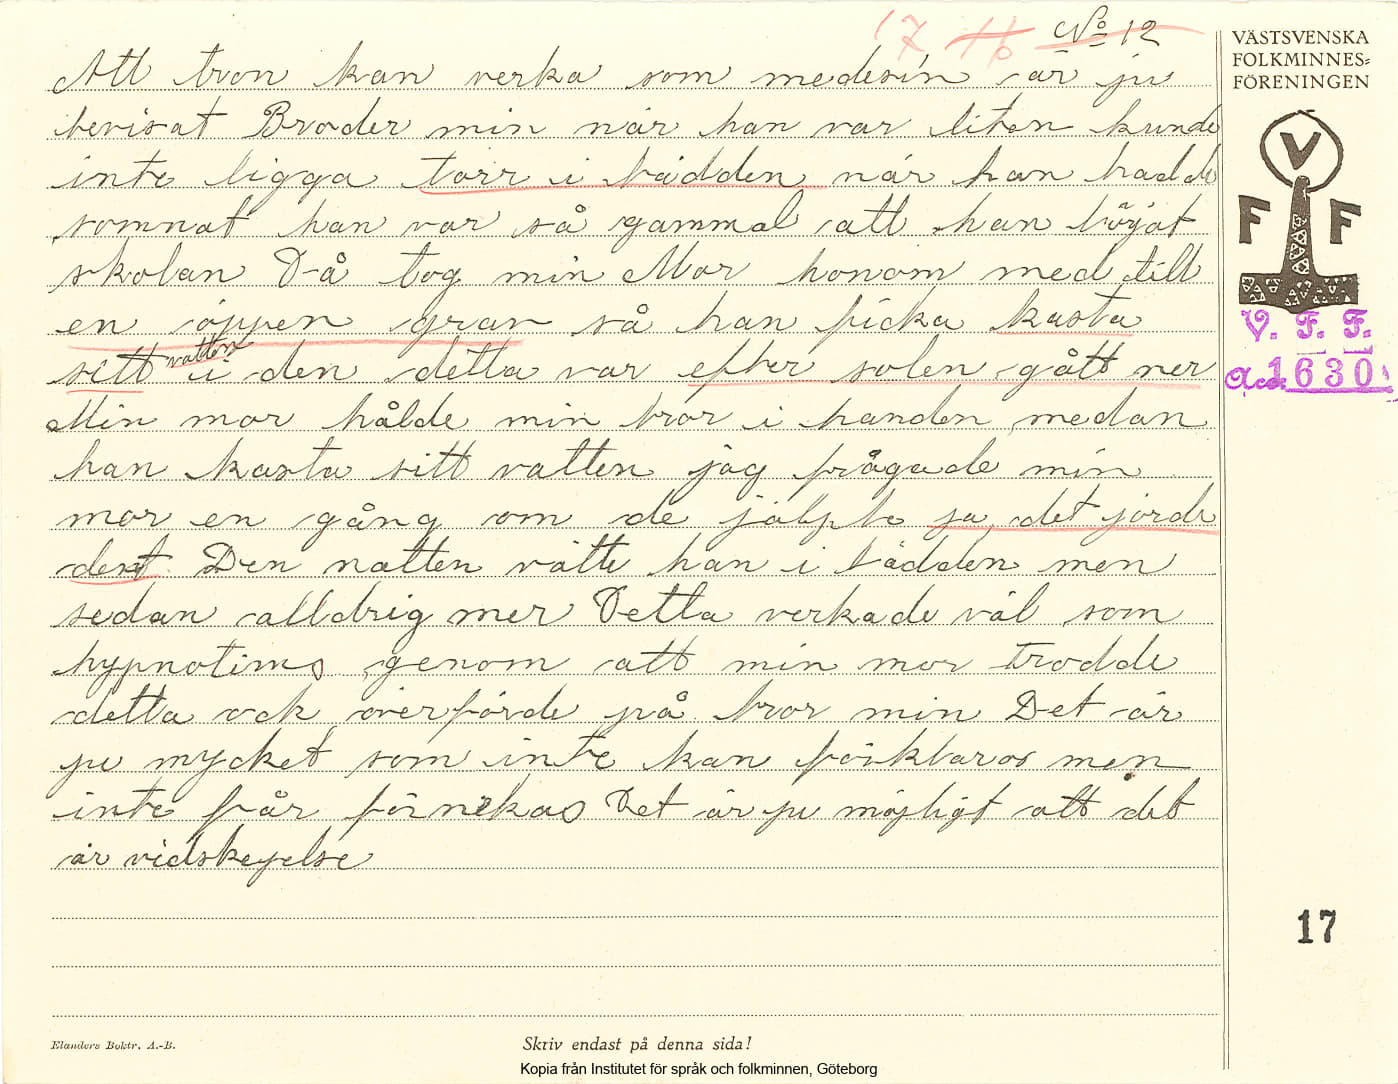 17 16 No 12
Att tron kan verka som medesin är ju
bevisat Broder min när han var liten kunde
inte ligga torr i bädden när han hadde
somnat han var så gammal att han böjat
skolan Då tog min Mor honom med till
en öppen grav så han ficka kasta
sitt vatten i den detta var efter solen gått ner
Min mor hålde min bror i handen medan
han kasta sitt vatten jag frågade min
mor en gång om de jälpte ja det jorde
dest Den natten vätte han i bädden men
sedan alldrig mer Detta verkade väl som
hypnotims genom att min mor trodde
detta ock överförde på bror min Det är
ju mycket som inte kan förklaras men
inte får förnekas Det är ju möjligt att det
är vidskepelse
VÄSTSVENSKA
FOLKMINNES=
FÖRENINGEN
V
F F
V. F. F.
Acc. 1630
17
Elanders Boktr. A.-B.
Skriv endast på denna sida!
Kopia från Institutet för språk och folkminnen, Göteborg